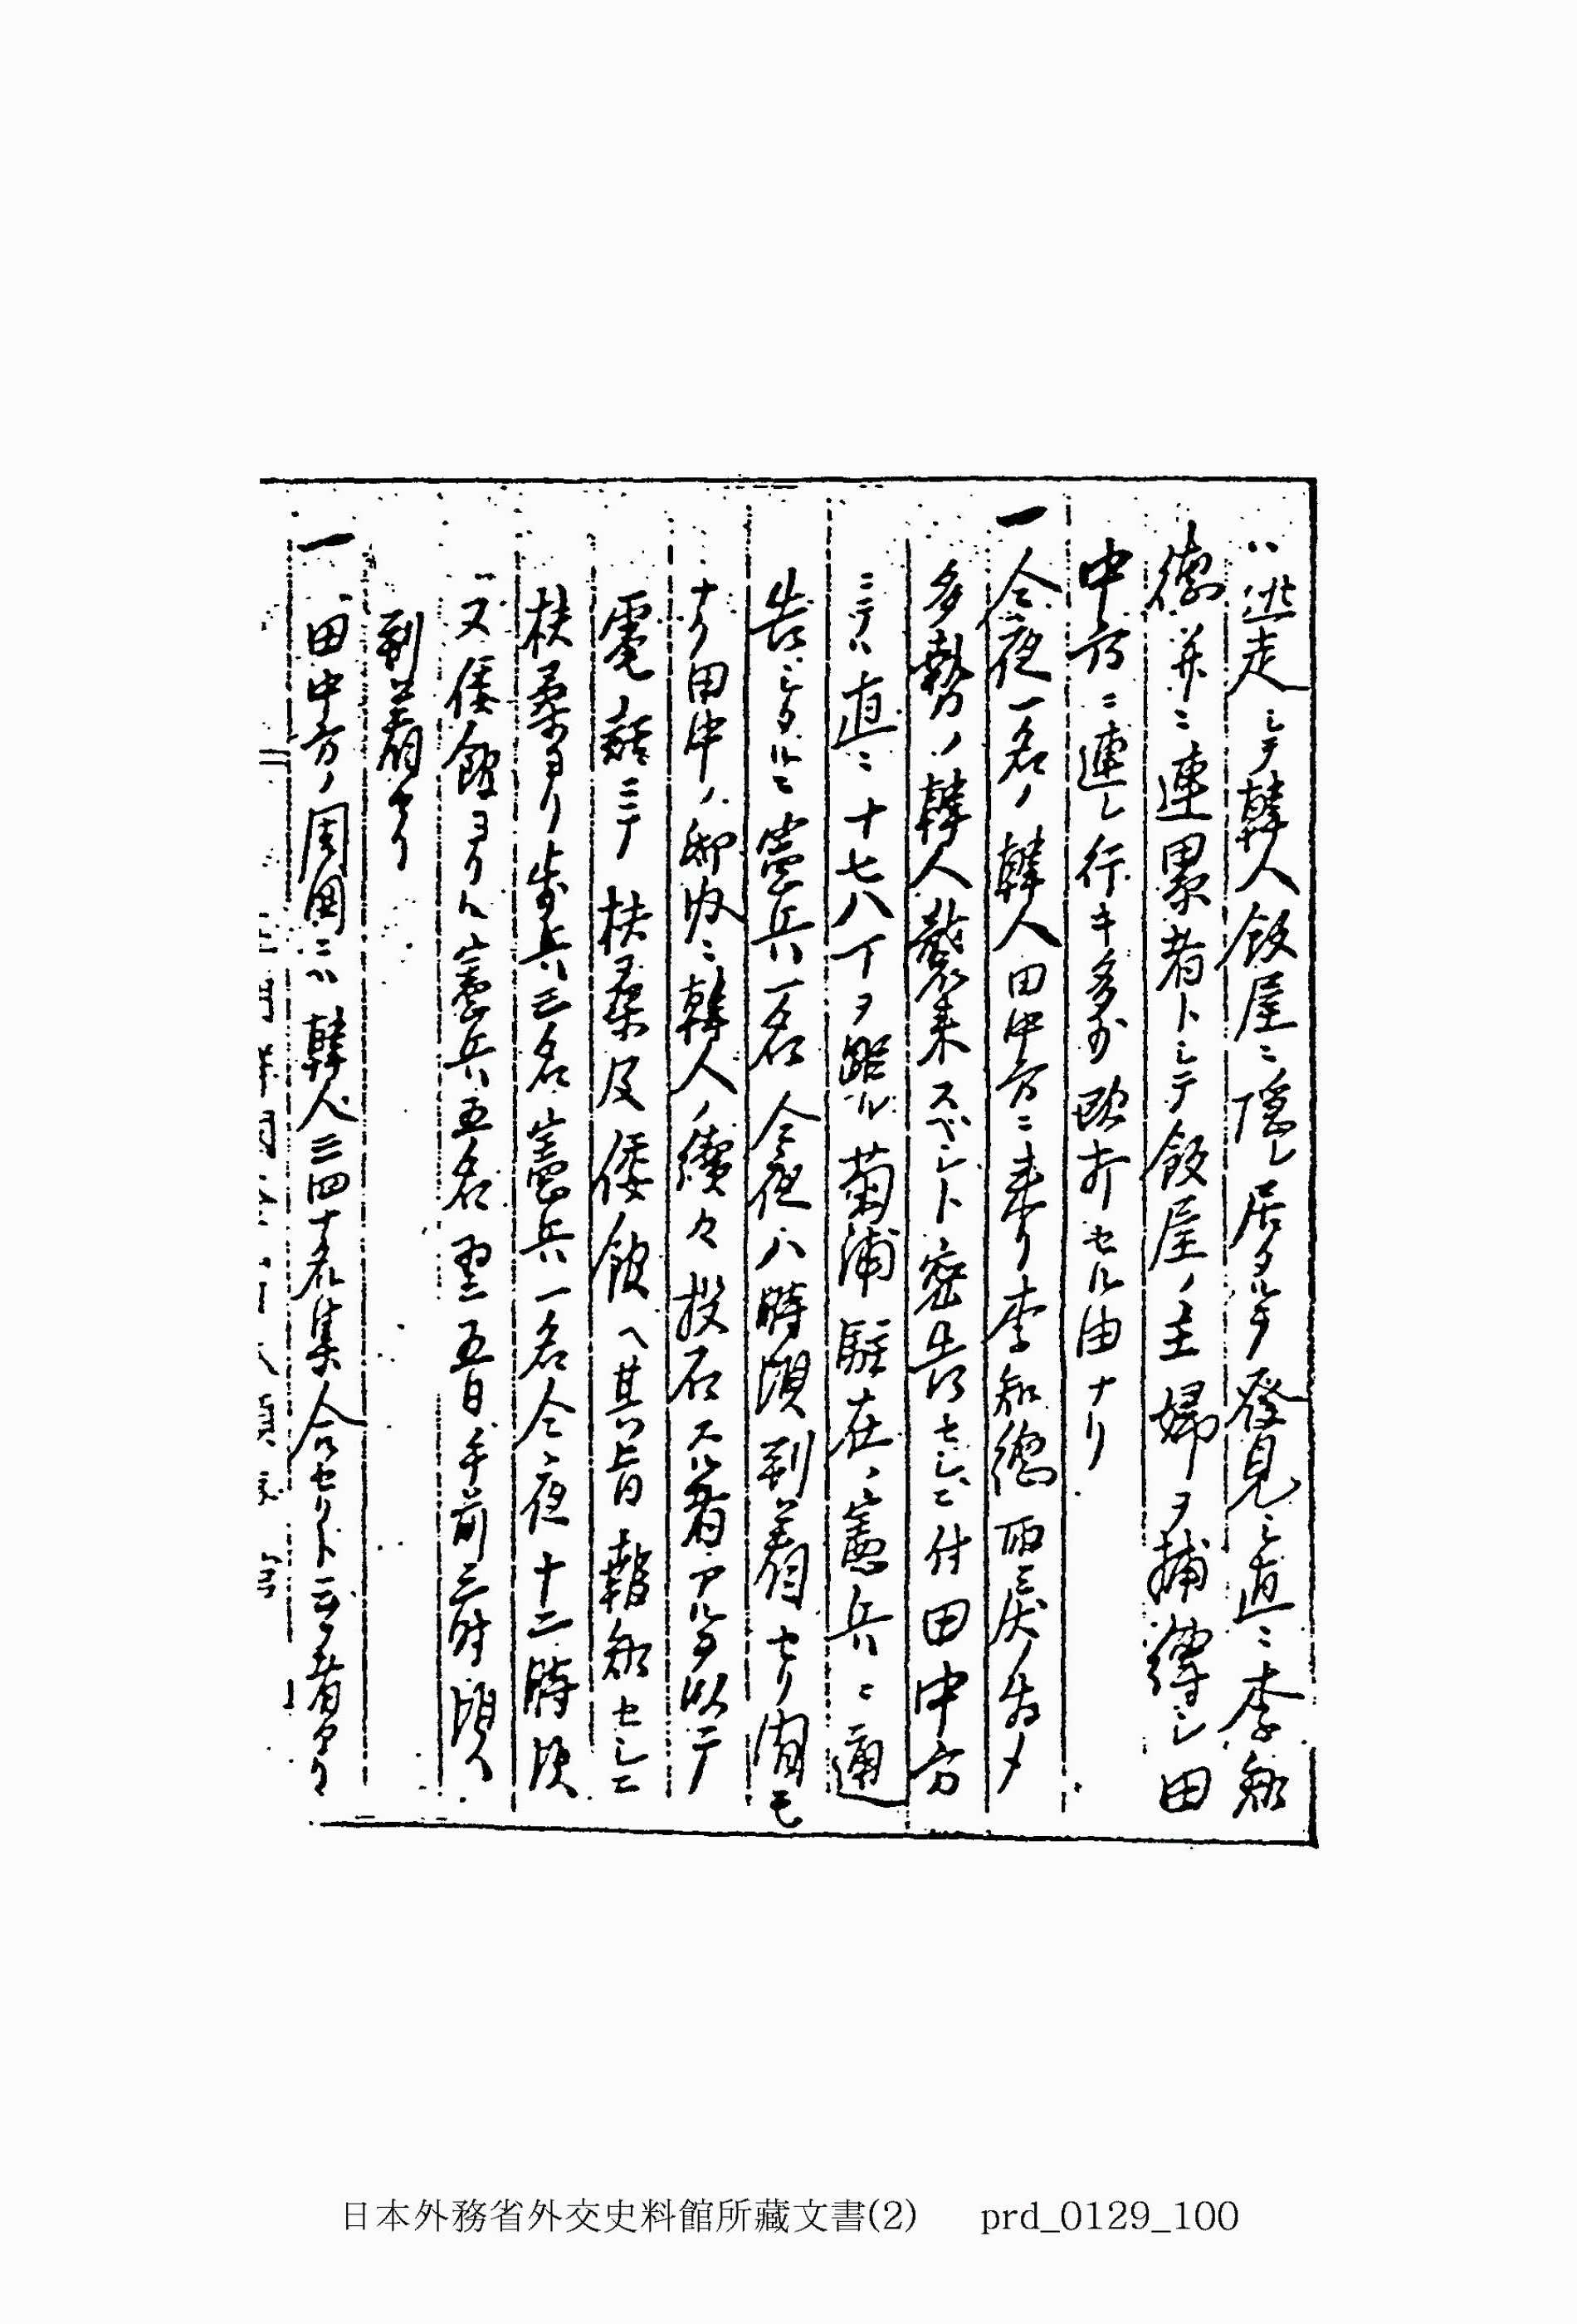 ハ逃走シテ韓人飯屋ニ隠レ居タルヲ發見シ直ニ李知
德并ニ連累者トシテ飯屋ノ主婦ヲ捕縛シ田
中方ニ連レ行キ多少欧打セル由ナリ
一 今夜一名ノ韓人田中方ニ来リ李知德取戻ノ為メ
多勢ノ韓人襲来スベシト密告セシニ付田中方
ニテハ直ニ十七八丁ヲ距ル菊浦駐在ノ憲兵ニ通
告シタルニ憲兵一名今夜八時頃到着セリ間モ
ナク田中ノ邸内ニ韓人ノ續々投石スル者アルヲ以テ
電話ニテ扶桑及倭館ヘ其旨報知セシニ
扶桑ヨリ歩兵三名憲兵一名今夜十二時頃
又倭館ヨリハ憲兵五名翌五日午前三時頃
到着セリ
一 田中方ノ周囲ニハ韓人三四十名集合セリト云フ者アリ
日本外務省外交史料館所藏文書(2) prd_0129_100